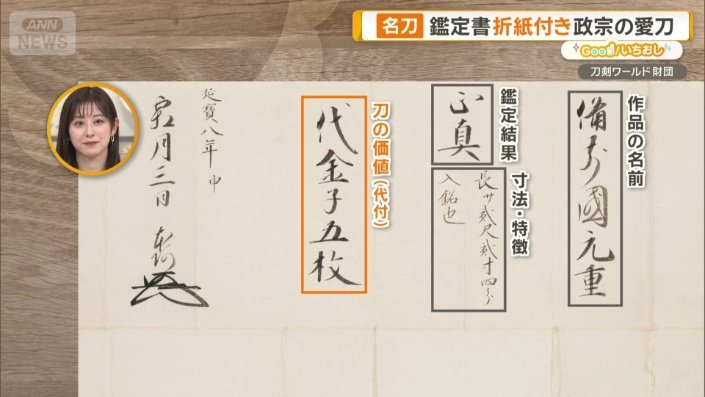 ANN NEWS
名刀 鑑定書折紙付き政宗の愛刀
Good!いちおし
刀剣ワールド財団
作品の名前
備前國元重
鑑定結果
正真
寸法・特徴
長サ貳尺貳寸四分
入銘也
刀の価値(代付)
代金子五枚
延寳八年申
霜月三日